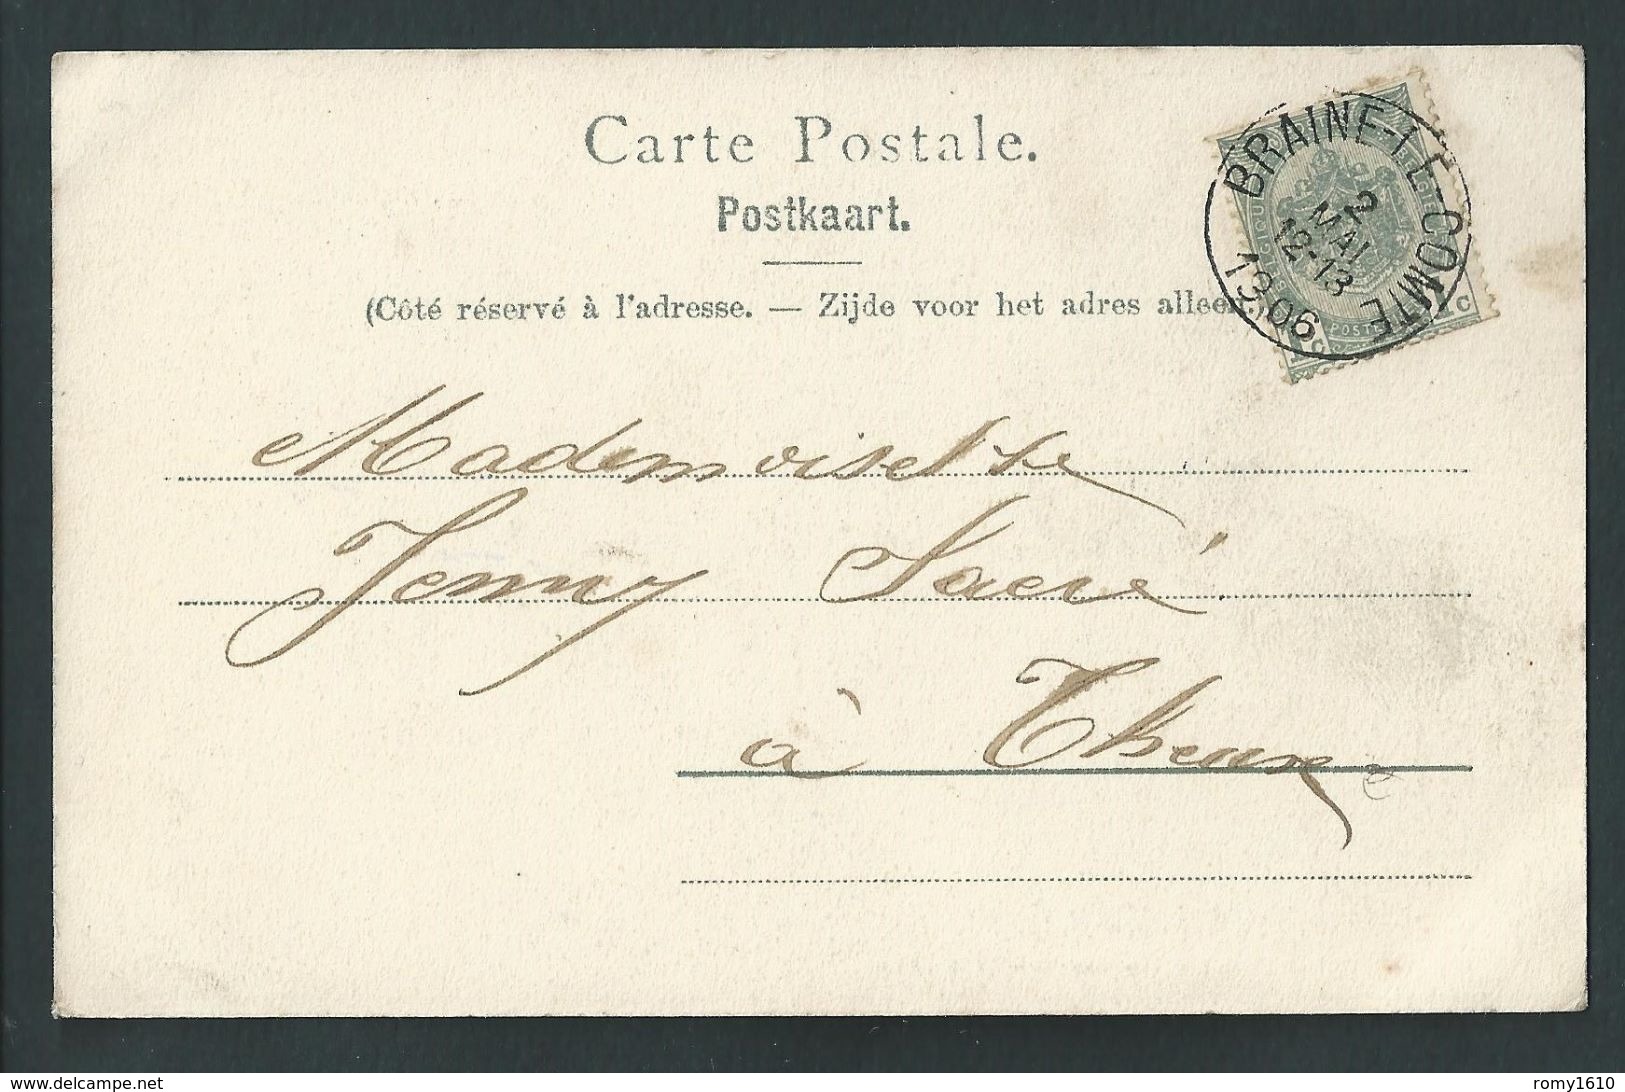 Carte Postale.
Postkaart.
(Côté réservé à l'adresse. — Zijde voor het adres alleen.)
BRAINE-LE-COMTE
2
MAI
12-13
1906
POST
1 C
1 C
Mademoiselle
Jenny
à Theux
delcampe.net
romy1610